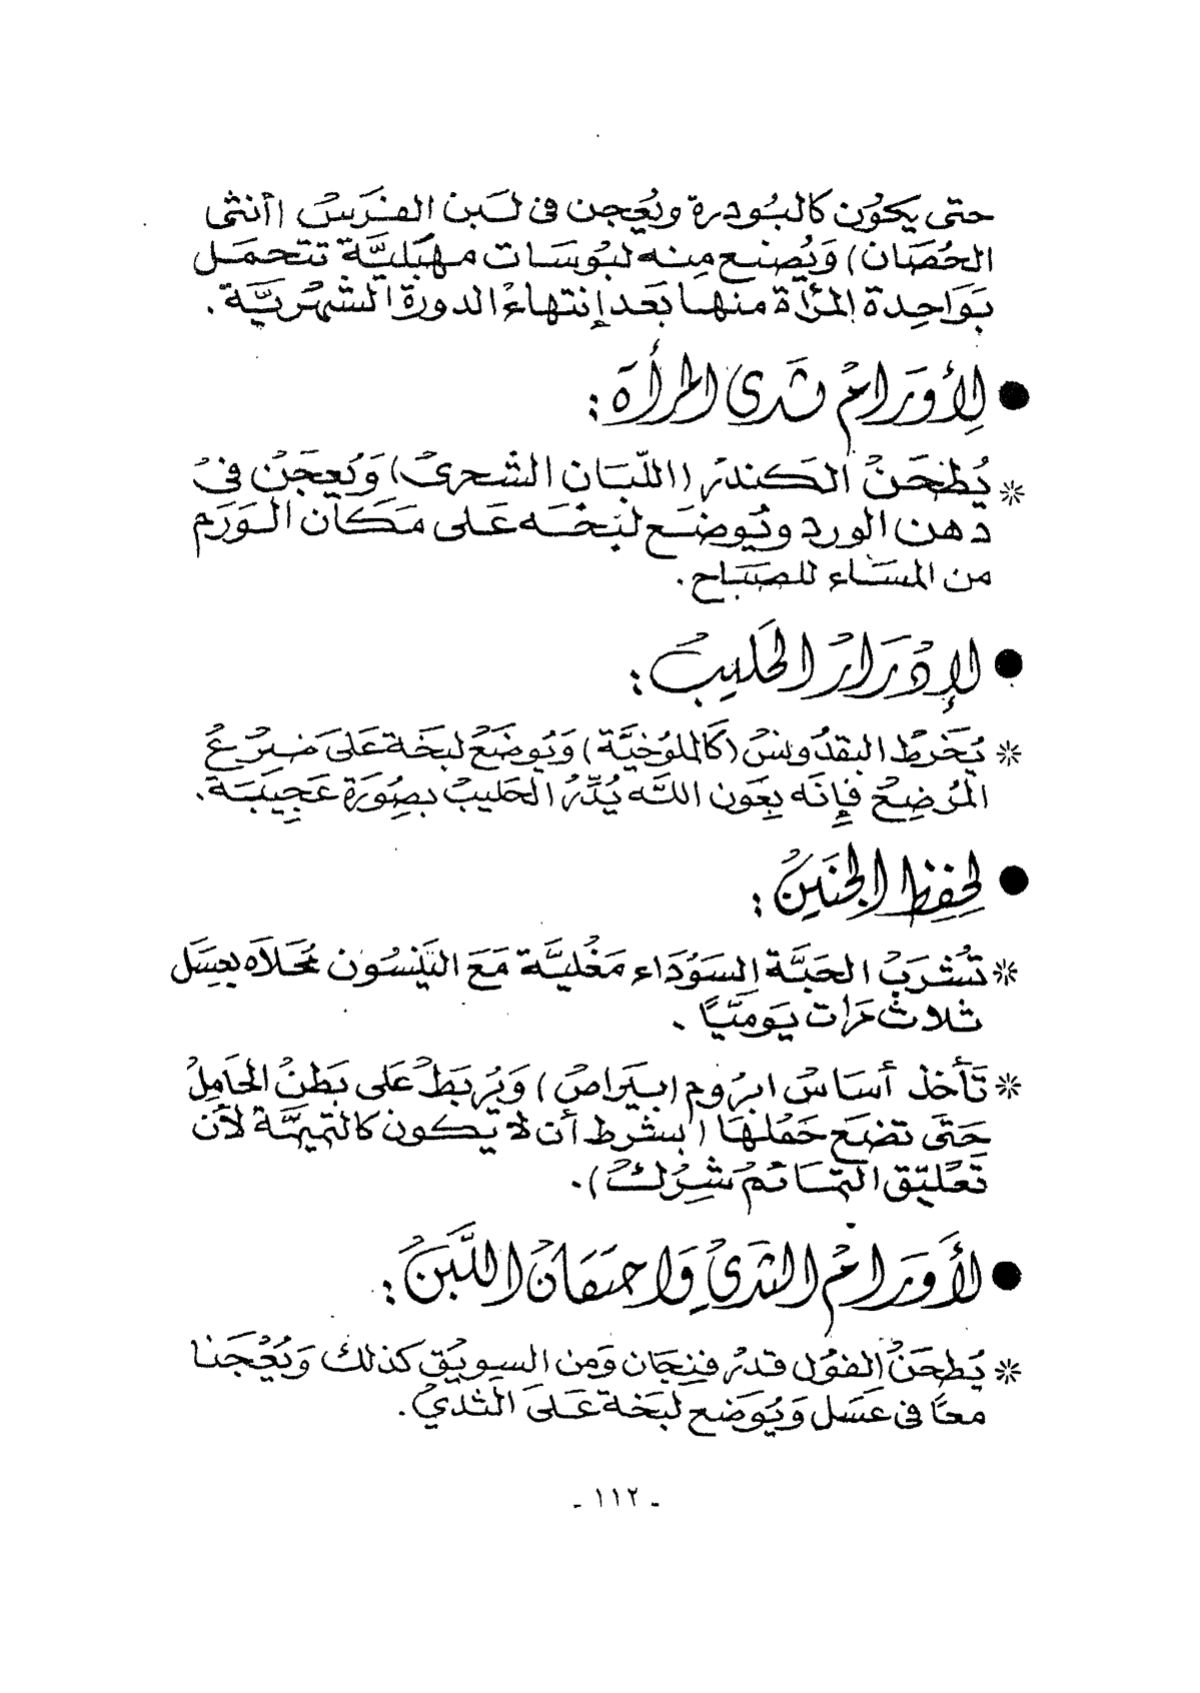 حتى يكون كالبُودرة ويُعجن فى لبن الفَرَسْ (أنثى
الحُصَان) وَيُصْنع مِنه لبُوسَات مهبَليَّة تتحمَل
بَوَاحِدة المرْأة منها بَعَد إنتهاءْ الدورة الشهْريَّة .
● لِأورَام ثدى المرأة :
* يُطْحَنْ الكندرْ (اللّبَان الشحرىْ) وَيُعجَنْ فىْ
دهن الورد ويُوضَع لبْخَه عَلى مَكَان الوَرَم
من المسَاء للصبَاح .
● لإدْرَارْ الحَليبْ :
* يُخَرطْ البقدُونسْ (كَالملوُخيَّة) وَيُوضَعْ لبخَة عَلىَ ضرْعْ
المرُضِعْ فإِنَه بِعَون اللَّه يُدِّرُ الحَليبْ بصِوُرَة عَجِيبَة .
● لحِفِظ الجَنَينْ :
* تشُرَبْ الحَبَّة السَوُدَاء مَغُليَّة مَعَ اليَنِسُون مُحَلاَه بعسَل
ثلاثْ مَرات يَومَيَّاً .
* تَأخذْ أسَاسْ ابرُوم (بيَراصْ) وَيُربَطْ عَلى بَطنْ الحَامِلْ
حَتىَ تضَعَ حَمُلهَا (بشرط أن لا يكون كالتميمَّة لأن
تَعْليَق التمَائمْ شِرْكْ) .
● لأَورَامْ الثدَىْ وَاحتقَانْ اللَّبَنْ :
* يُطحَنْ الفوُل قدرْ فنِجَان وَمن السويَق كذلكْ وَيُعْجَنا
معاً فى عَسَل وَيُوَضع لبَخة عَلىَ الثديْ .
- ١١٢ -